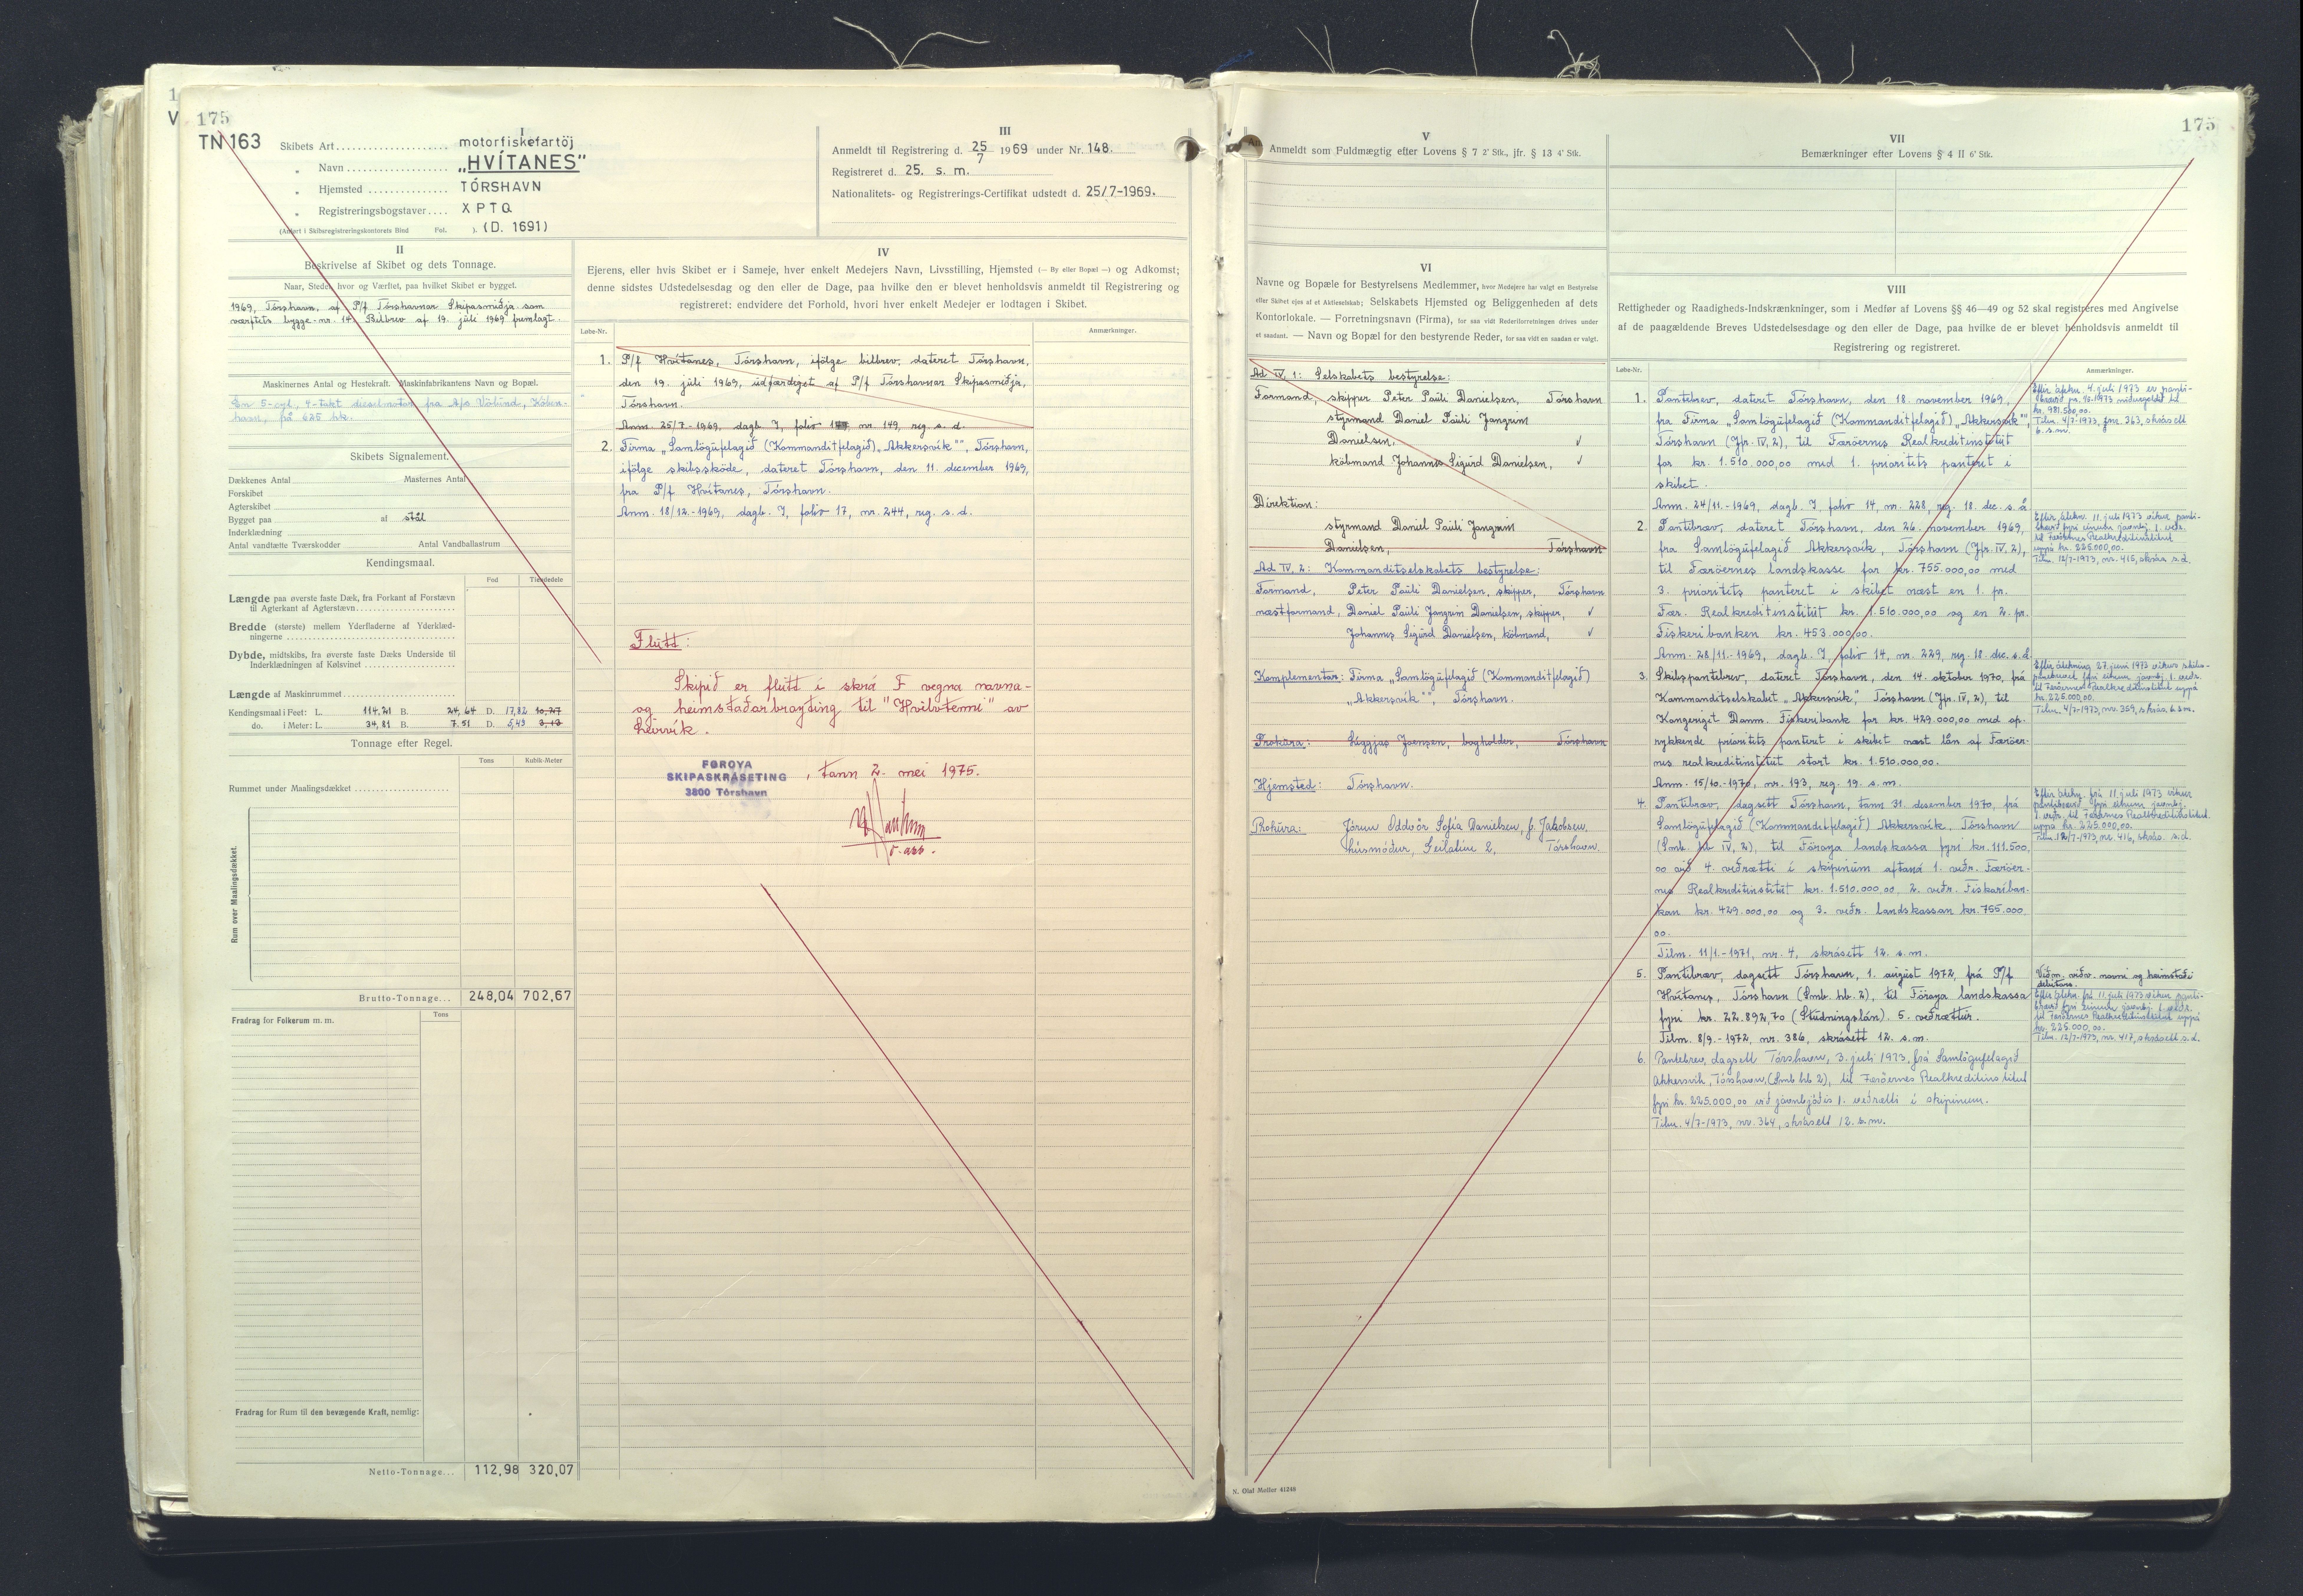 175
TN 163
I
Skibets Art motorfiskefartöj
„ Navn „HVÍTANES"
„ Hjemsted TÓRSHAVN
„ Registreringsbogstaver XPTQ
(Anført i Skibsregistreringskontorets Bind Fol. ). (D. 1691)
III
Anmeldt til Registrering d. 25/7 1969 under Nr. 148.
Registreret d. 25. s. m.
Nationalitets- og Registrerings-Certifikat udstedt d. 25/7-1969.
II
Beskrivelse af Skibet og dets Tonnage.
Naar, Stedet hvor og Værftet, paa hvilket Skibet er bygget.
1969, Tórshavn, af P/f Tórshavnar Skipasmiðja som
værftets bygge-nr. 14. Bilbrev af 19. júli 1969 fremlagt.
Maskinernes Antal og Hestekraft. Maskinfabrikantens Navn og Bopæl.
En 5-cyl., 4-takt dieselmotor fra A/s Völund, Köben-
havn, på 625 hk.
Skibets Signalement.
Dækkenes Antal Masternes Antal
Forskibet
Agterskibet
Bygget paa af stål
Inderklædning
Antal vandtætte Tværskodder Antal Vandballastrum
Kendingsmaal.
Fod Tiendedele
Længde paa øverste faste Dæk, fra Forkant af Forstævn
til Agterkant af Agterstævn
Bredde (største) mellem Yderfladerne af Yderklæd-
ningerne
Dybde, midtskibs, fra øverste faste Dæks Underside til
Inderklædningen af Kølsvinet
Længde af Maskinrummet
Kendingsmaal i Feet: L. 114,21 B. 24,64 D. 17,82 10,27
do. i Meter: L. 34,81 B. 7.51 D. 5,43 3,13
Tonnage efter Regel.
Tons Kubik-Meter
Rummet under Maalingsdækket
Rum over Maalingsdækket.
Brutto-Tonnage... 248,04 702,67
Fradrag for Folkerum m. m. Tons
Fradrag for Rum til den bevægende Kraft, nemlig:
Netto-Tonnage... 112,98 320,07
IV
Ejerens, eller hvis Skibet er i Sameje, hver enkelt Medejers Navn, Livsstilling, Hjemsted (— By eller Bopæl —) og Adkomst;
denne sidstes Udstedelsesdag og den eller de Dage, paa hvilke den er blevet henholdsvis anmeldt til Registrering og
registreret: endvidere det Forhold, hvori hver enkelt Medejer er lodtagen i Skibet.
Løbe-Nr. Anmærkninger.
1. P/f Hvítanes, Tórshavn, ifölge bilbrev, dateret Tórshavn,
den 19. júli 1969, udfærdiget af P/f Tórshavnar Skipasmiðja,
Tórshavn.
Anm. 25/7-1969, dagb. I, folio nr. 149, reg. s. d.
2. Firma „Samlögufelagið (Kommanditfelagið) „Akkersvík"", Tórshavn,
ifölge skibssköde, dateret Tórshavn, den 11. december 1969,
fra P/f Hvítanes, Tórshavn.
Anm. 18/12-1969, dagb. I, folio 17, nr. 244, reg. s. d.
Flutt:
Skipið er flutt í skrá F vegna navna-
og heimstaðarbroyting til "Hvilvtenni" av
Leirvík.
FØROYA
SKIPASKRÁSETING
3800 Tórshavn
, tann 2. mei 1975.
175
V
Anmeldt som Fuldmægtig efter Lovens § 7 2' Stk., jfr. § 13 4' Stk.
VI
Navne og Bopæle for Bestyrelsens Medlemmer, hvor Medejere har valgt en Bestyrelse
eller Skibet ejes af et Aktieselskab; Selskabets Hjemsted og Beliggenheden af dets
Kontorlokale. — Forretningsnavn (Firma), for saa vidt Rederiforretningen drives under
et saadant. — Navn og Bopæl for den bestyrende Reder, for saa vidt en saadan er valgt.
Ad IV, 1: Selskabets bestyrelse:
Formand, skipper Peter Pauli Danielsen, Tórshavn
styrmand Daniel Pauli Jangrim
Danielsen, √
köbmand Johannes Sigurd Danielsen, √
Direktion:
styrmand Daniel Pauli Jangrim
Danielsen, Tórshavn
Ad IV, 2: Kommanditselskabets bestyrelse:
Formand, Peter Pauli Danielsen, skipper, Tórshavn
næstformand, Daniel Pauli Jangrim Danielsen, skipper, √
Johannes Sigurd Danielsen, köbmand, √
Komplementar: Firma „Samlögufelagið (Kommanditfelagið)
„Akkersvík"", Tórshavn.
Prokura: Liggjas Joensen, bogholder, Tórshavn
Hjemsted: Tórshavn.
Prokura: Jórun Oddvör Sofía Danielsen, f. Jakobsen,
húsmóður, Geilatún 2, Tórshavn.
VII
Bemærkninger efter Lovens § 4 II 6' Stk.
VIII
Rettigheder og Raadigheds-Indskrænkninger, som i Medfør af Lovens §§ 46—49 og 52 skal registreres med Angivelse
af de paagældende Breves Udstedelsesdage og den eller de Dage, paa hvilke de er blevet henholdsvis anmeldt til
Registrering og registreret.
Løbe-Nr. Anmærkninger.
1. Pantebrev, dateret Tórshavn, den 18. november 1969,
fra Firma „Samlögufelagið (Kommanditfelagið) „Akkersvík"",
Tórshavn (Jfr. IV, 2), til Færöernes Realkreditinstitut
for kr. 1.510.000,00 med 1. prioritets panteret i
skibet.
Anm. 24/11-1969, dagb. I, folio 14, nr. 228, reg. 18. dec. s. å.
Eftir áteknn. 4. juli 1973 er panti-
brævið pr. 1973 niðurgoldið til
kr. 981.500,00.
Tilm. 4/7-1973, nr. 363, skrásett
6. s.m.
2. Pantibræv, dateret Tórshavn, den 26. november 1969,
fra Samlögufelagið Akkersvík, Tórshavn (Jfr. IV, 2),
til Færöernes landskasse for kr. 755.000,00 med
3. prioritets panteret i skibet næst en 1. pr.
Fær. Realkreditinstitut kr. 1.510.000,00 og en 2. pr.
Fiskeribanken kr. 453.000,00.
Anm. 28/11-1969, dagb. I, folio 14, nr. 229, reg. 18. dec. s. å.
Eftir átekn. 11. juli 1973 víkur panti-
brævið fyri einum javnbj. 1. veðr.
til Færöernes Realkreditinstitut
uppá kr. 225.000,00.
Tilm. 12/7-1973, nr. 415, skrás. s.d.
3. Skibspantebrev, dateret Tórshavn, den 14. oktober 1970, fra
Kommanditselskabet „Akkersvík", Tórshavn (Jfr. IV, 2), til
Kongeriget Danm. Fiskeribank for kr. 429.000,00 med op-
rykkende prioritets panteret i skibet næst lån af Færöer-
nes realkreditinstitut stort kr. 1.510.000,00.
Anm. 15/10-1970, nr. 193, reg. 19. s. m.
Eftir átekning 27. juni 1973 víkur skibs-
pantebrevet fyri einum javnbj. 1. veðr.
til Færöernes Realkreditinstitut uppá
kr. 225.000,00.
Tilm. 4/7-1973, nr. 359, skrás. 6. s.m.
4. Pantibræv, dagsett Tórshavn, tann 31. desember 1970, frá
Samlögufelagið (Kommanditfelagið) Akkersvík, Tórshavn
(Smb. hb. IV, 2), til Föroya landskassa fyri kr. 111.500,
00 við 4. veðrætti í skipinum aftaná 1. veðr. Færöer-
nes Realkreditinstitut kr. 1.510.000,00, 2. veðr. Fiskaríban-
kan kr. 429.000,00 og 3. veðr. landskassan kr. 755.000,
00.
Tilm. 11/1-1971, nr. 4, skrásett 12. s. m.
Eftir átekn. frá 11. juli 1973 víkur
pantibrævið fyri einum javnbj.
1. veðr. til Færöernes Realkreditinstitut
uppá kr. 225.000,00.
Tilm. 12/7-1973, nr. 416, skrás. s.d.
5. Pantibræv, dagsett Tórshavn, 1. august 1972, frá P/f
Hvítanes, Tórshavn (Smb. hb. 2), til Föroya landskassa
fyri kr. 22.892,70 (Studningslán). 5. veðrættur.
Tilm. 8/9-1972, nr. 386, skrásett 12. s. m.
Viðm. viðv. navni og heimstaði
debitors.
Eftir átekn. frá 11. juli 1973 víkur panti-
brævið fyri einum javnbj. 1. veðr.
til Færöernes Realkreditinstitut uppá
kr. 225.000,00.
Tilm. 12/7-1973, nr. 417, skrásett s.d.
6. Pantebrev, dagsett Tórshavn, 3. juli 1973, frá Samlögufelagið
Akkersvík, Tórshavn, (Smb. hb. 2), til Færöernes Realkreditinstitut
fyri kr. 225.000,00 við javnbjóðis 1. veðrætti í skipinum.
Tilm. 4/7-1973, nr. 364, skrásett 12. s.m.
N. Olaf Møller 41248